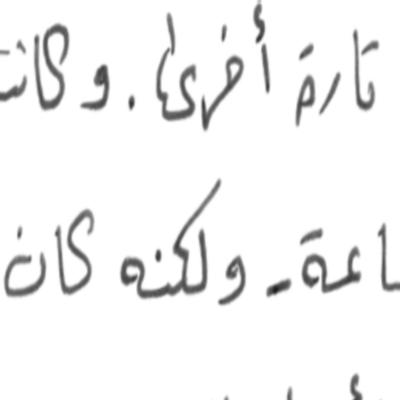 تارة أخرى . وكانت
اعة - ولكنه كان